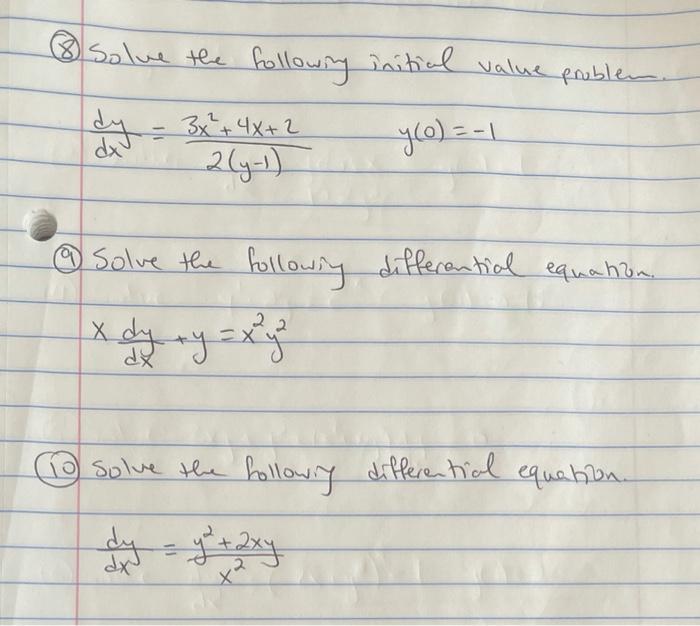 ⑧ Solve the following initial value problem.
dy/dx = (3x² + 4x + 2)/(2(y-1))    y(0) = -1
⑨ Solve the following differential equation.
x dy/dx + y = x²y²
⑩ Solve the following differential equation.
dy/dx = (y² + 2xy)/x²